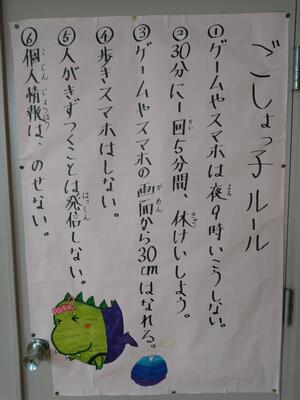 ごしょっ子 ルール
①ゲームやスマホは夜9時いこうしない。
②30分に1回5分間、休けいしよう。
③ゲームやスマホの画面から30cmはなれる。
④歩きスマホはしない。
⑤人がきずつくことは発信しない。
⑥個人情報は、のせない。